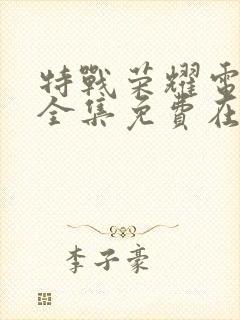 特戰荣耀電
全集免費在
李子豪